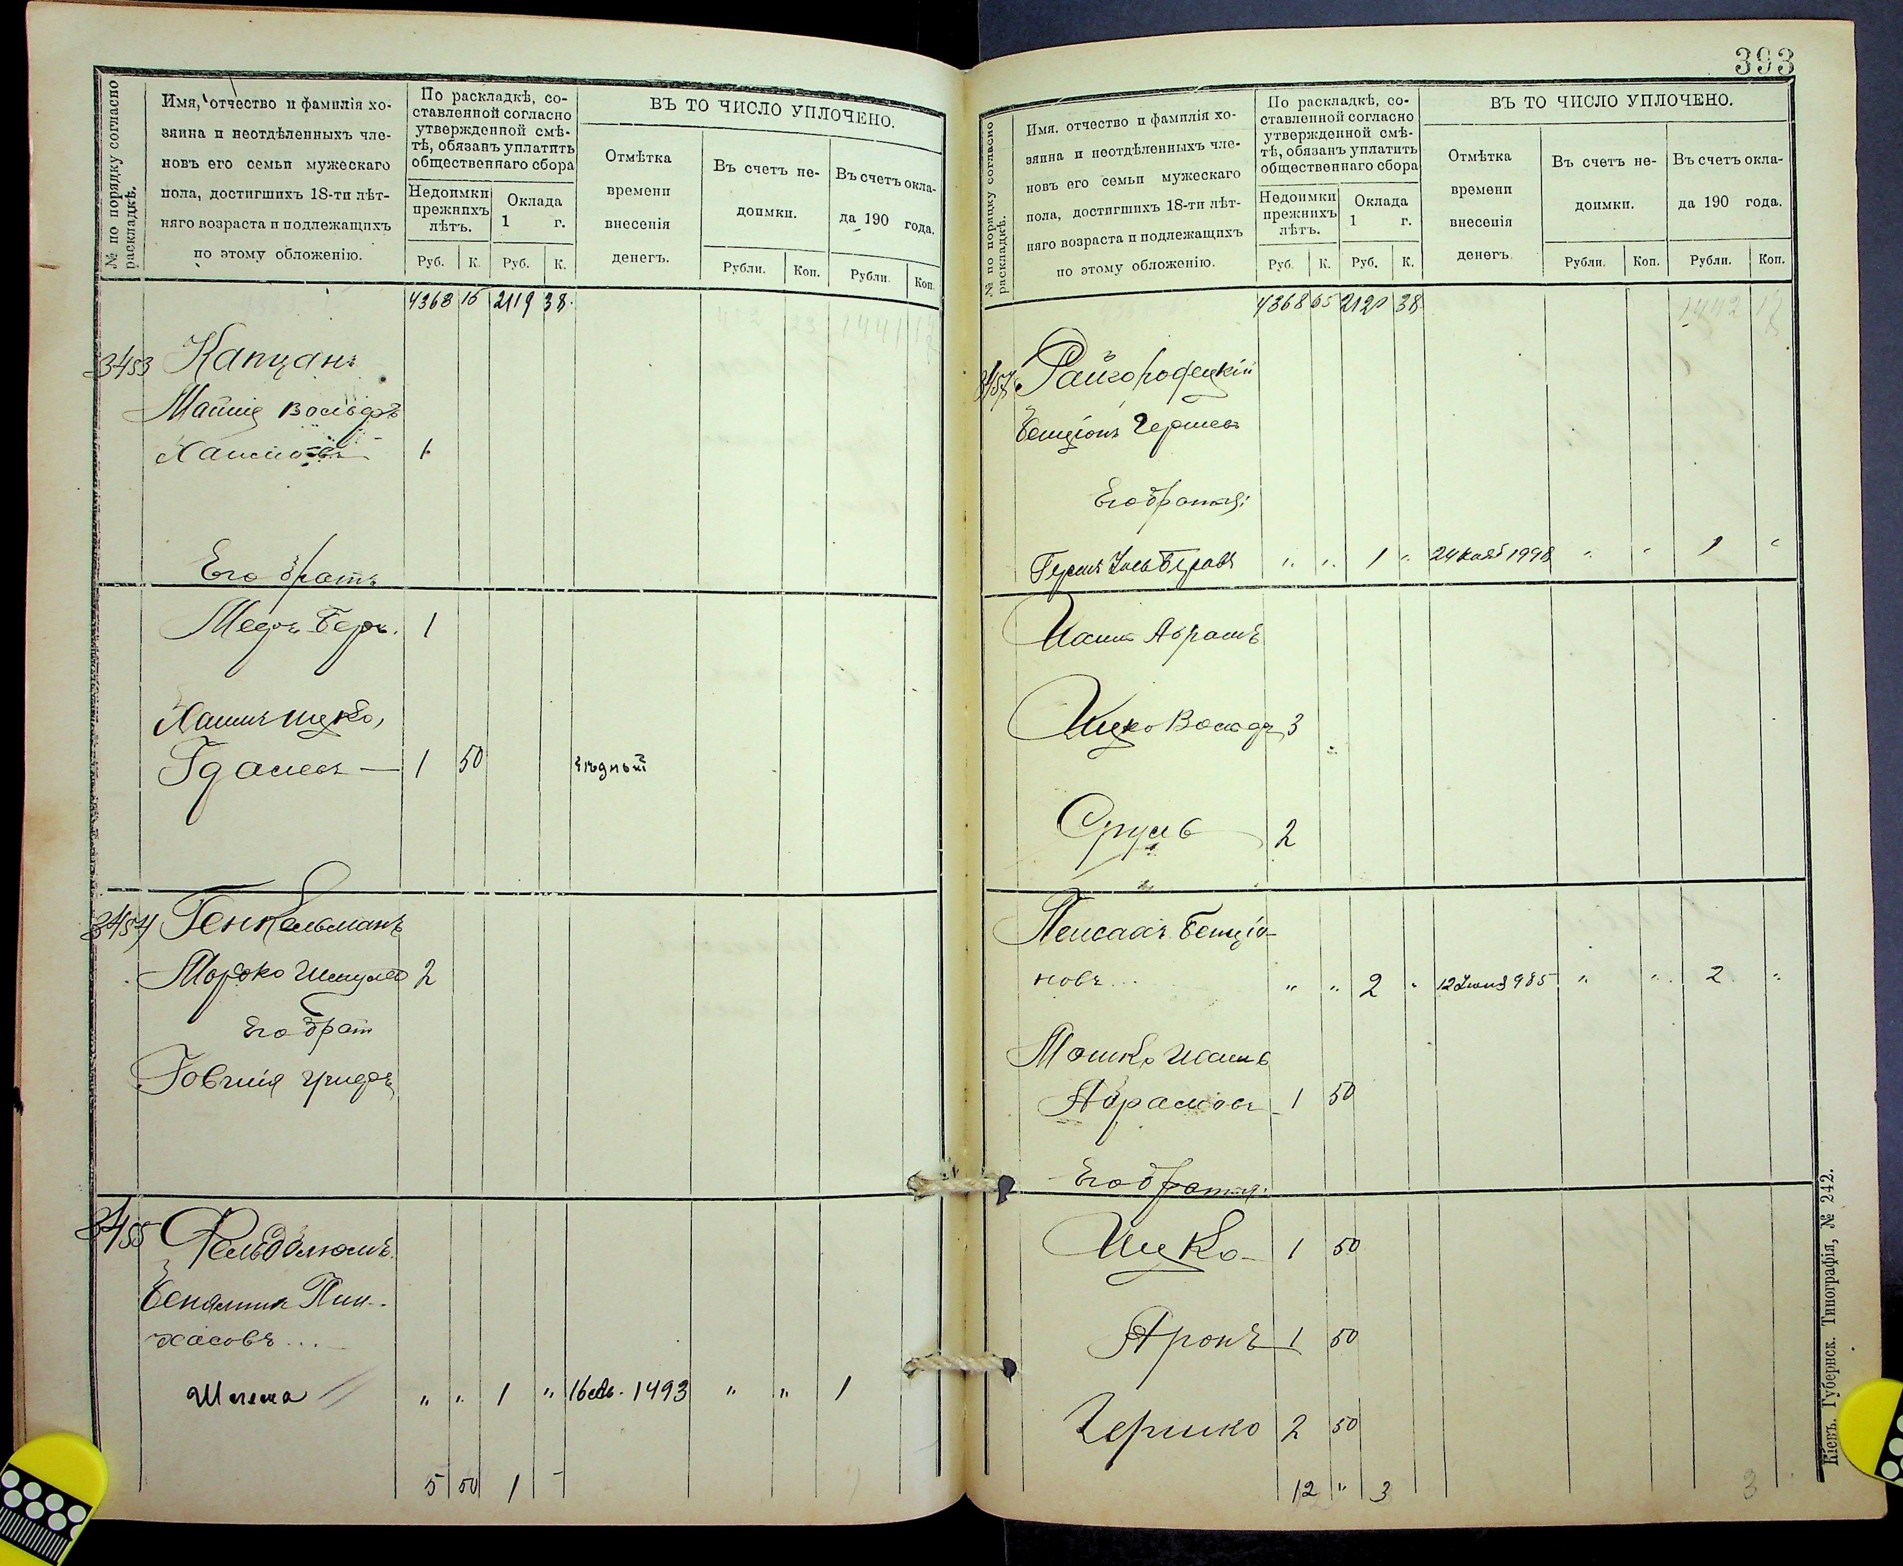 № по порядку согласно раскладкѣ.
Имя, отчество и фамилія хо-
зяина и неотдѣленныхъ чле-
новъ его семьи мужескаго
пола, достигшихъ 18-ти лѣт-
няго возраста и подлежащихъ
по этому обложенію.
По раскладкѣ, со-
ставленной согласно
утвержденной смѣ-
тѣ, обязанъ уплатить
общественнаго сбора
Недоимки
прежнихъ
лѣтъ.
Оклада
1 г.
Руб. К. Руб. К.
ВЪ ТО ЧИСЛО УПЛОЧЕНО.
Отмѣтка
времени
внесенія
денегъ.
Въ счетъ не-
доимки.
Въ счетъ окла-
да 190 года.
Рубли. Коп. Рубли. Коп.
4368 15 2119 38
3453 Капцанъ
Машія Вольфъ
Хаимовъ 1
Его братъ
Мееръ Беръ. 1
Хаимъ Ицко,
Гдалевъ — 1 50 бѣдный
3454 Генкельманъ
Мордко 2
Его брат
Говшія
3455 Фельдблюмъ
Беняминъ Пин-
хасовъ...
Шлема " " 1 " 1493 " " 1
5 50 1 -
393
№ по порядку согласно раскладкѣ.
Имя, отчество и фамилія хо-
зяина и неотдѣленныхъ чле-
новъ его семьи мужескаго
пола, достигшихъ 18-ти лѣт-
няго возраста и подлежащихъ
по этому обложенію.
По раскладкѣ, со-
ставленной согласно
утвержденной смѣ-
тѣ, обязанъ уплатить
общественнаго сбора
Недоимки
прежнихъ
лѣтъ.
Оклада
1 г.
Руб. К. Руб. К.
ВЪ ТО ЧИСЛО УПЛОЧЕНО.
Отмѣтка
времени
внесенія
денегъ.
Въ счетъ не-
доимки.
Въ счетъ окла-
да 190 года.
Рубли. Коп. Рубли. Коп.
4368 65 2120 38
1442
Райгородецкій
Бенціонъ Гершевъ
Его братья:
" " 1 " 24 1998 " " 1 "
Абрамъ
Ицко Вольфъ 3
Сруль 2
Пейсахъ Бенціо-
новъ... " " 2 " 12 985 " " 2 "
Мошко
Абрамовъ 1 50
Его братья:
Ицко 1 50
Аронъ 1 50
Гершко 2 50
12 " 3
3
Кіевъ. Губернск. Типографія, № 242.